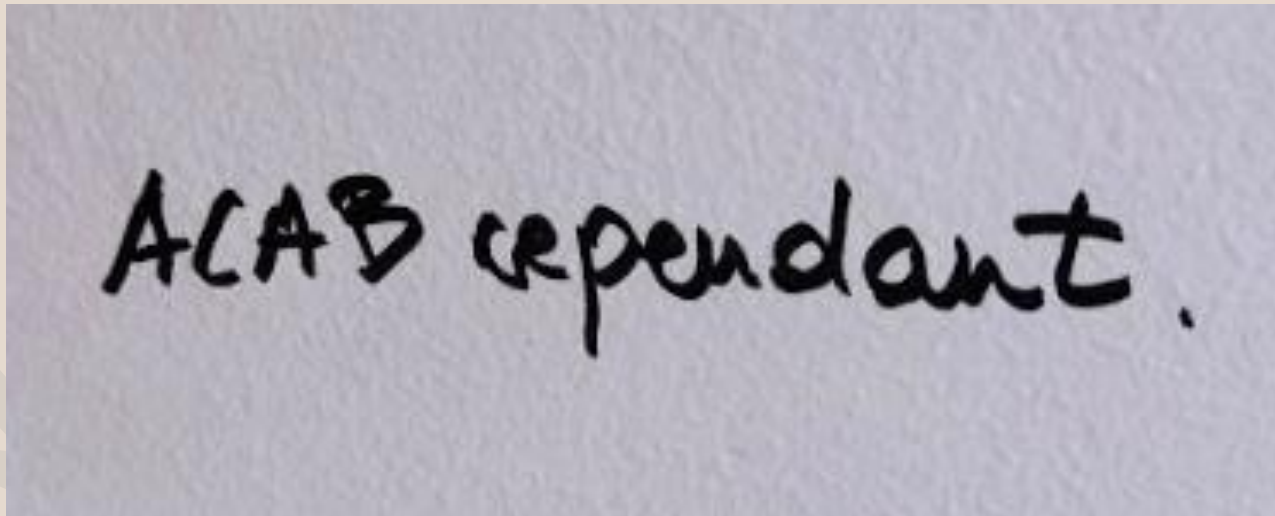 ACAB cependant.